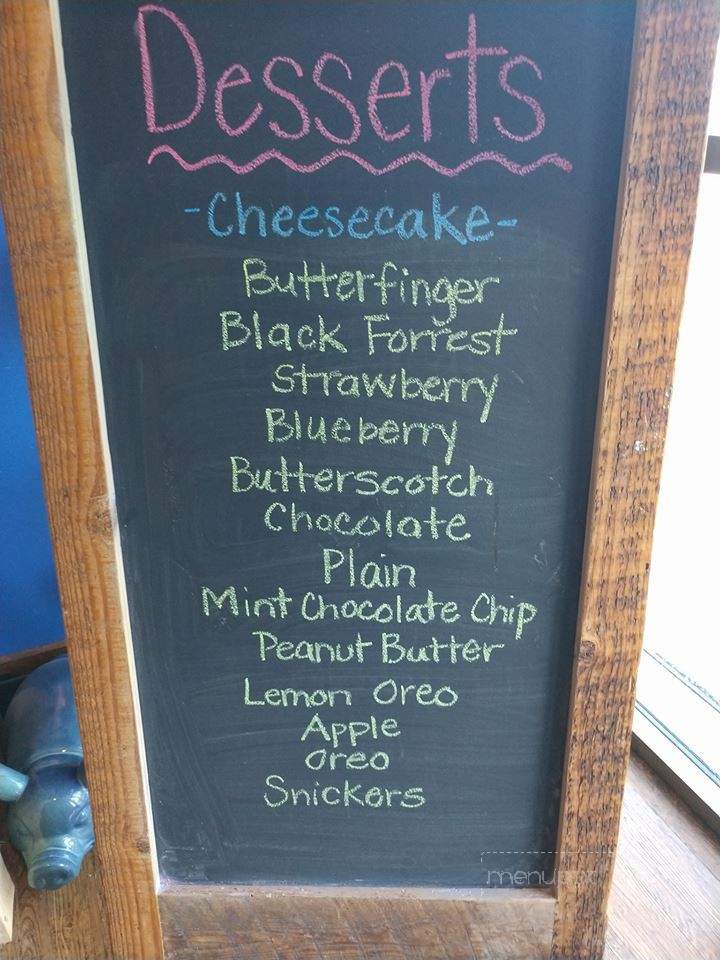 Desserts
-Cheesecake-
Butterfinger
Black Forrest
Strawberry
Blueberry
Butterscotch
Chocolate
Plain
Mint Chocolate Chip
Peanut Butter
Lemon Oreo
Apple
Oreo
Snickers